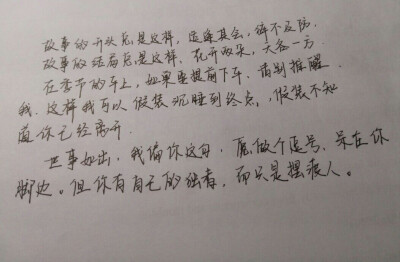 故事的开头总是这样，适逢其会，猝不及防，
故事的结局总是这样，花开两朵，天各一方。
在季节的车上，如果要提前下车，请别推醒
我，这样我可以假装沉睡到终点，假装不知
道你已经离开。
世事如出，我偏你这句，愿做个逗号，呆在你
脚边。但你有自己的独者，而只是摆渡人。